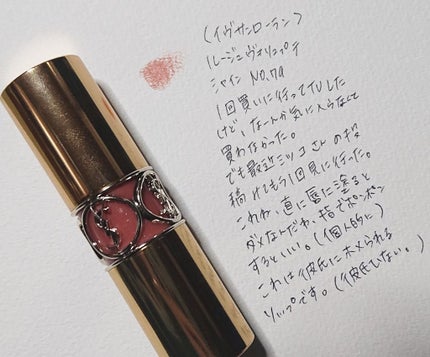 (イヴサンローラン)
ルージュヴォリュプテ
シャイン NO.79
1回買いに行ってTVした
けど、なーんか気に入らなくて
買わなかった。
でも最近ミツコさんの投
稿みてもう1回見に行った。
これね、直に唇に塗ると
ダメなんだわ、指でポンポン
するといい。(個人的に)
これは彼氏にホメられる
リップです。(彼氏いない。)